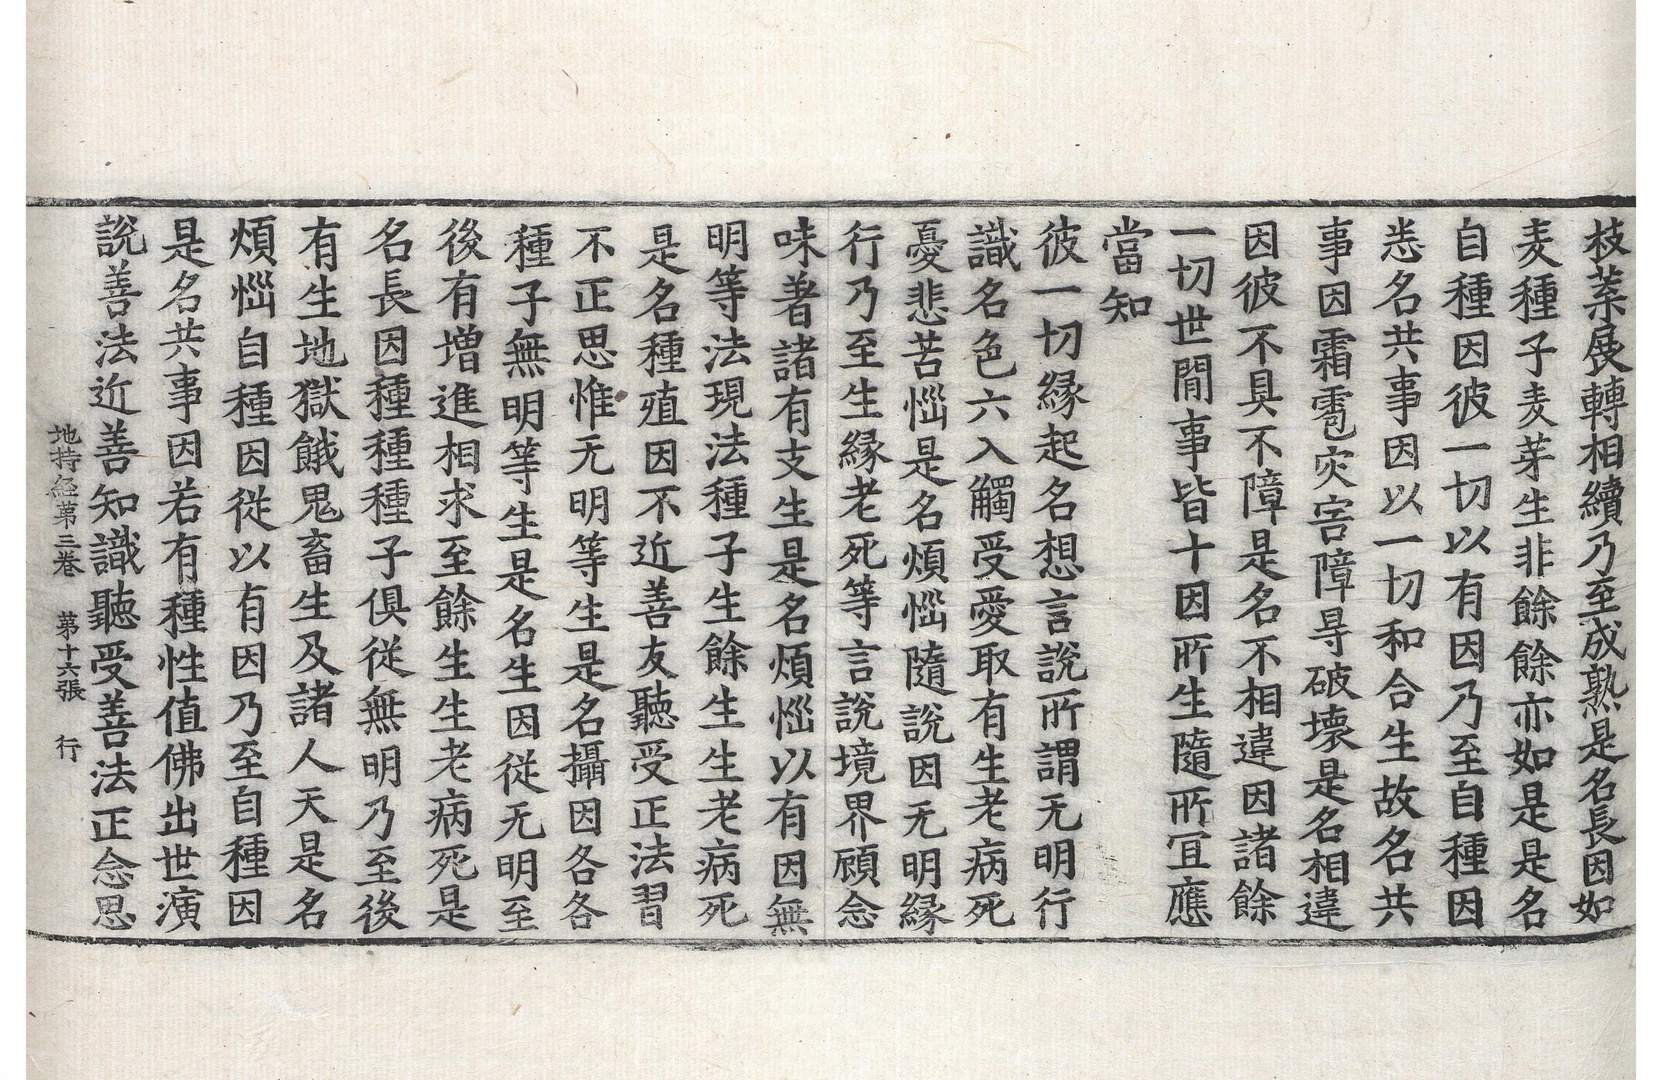 枝葉展轉相續乃至成熟是名長因如
麦種子麦芽生非餘餘亦如是是名
自種因彼一切以有因乃至自種因
悉名共事因以一切和合生故名共
事因霜雹灾害障㝵破壞是名相違
因彼不具不障是名不相違因諸餘
一切世間事皆十因所生隨所宜應
當知
彼一切縁起名想言說所謂无明行
識名色六入觸受愛取有生老病死
憂悲苦惱是名煩惱隨說因无明縁
行乃至生縁老死等言說境界顧念
味著諸有支生是名煩惱以有因無
明等法現法種子生餘生生老病死
是名種殖因不近善友聽受正法習
不正思惟无明等生是名攝因各各
種子無明等生是名生因從无明至
後有增進相求至餘生生老病死是
名長因種種種子俱從無明乃至後
有生地獄餓鬼畜生及諸人天是名
煩惱自種因從以有因乃至自種因
是名共事因若有種性值佛出世演
說善法近善知識聽受善法正念思
地持経苐三卷 苐十六張 行